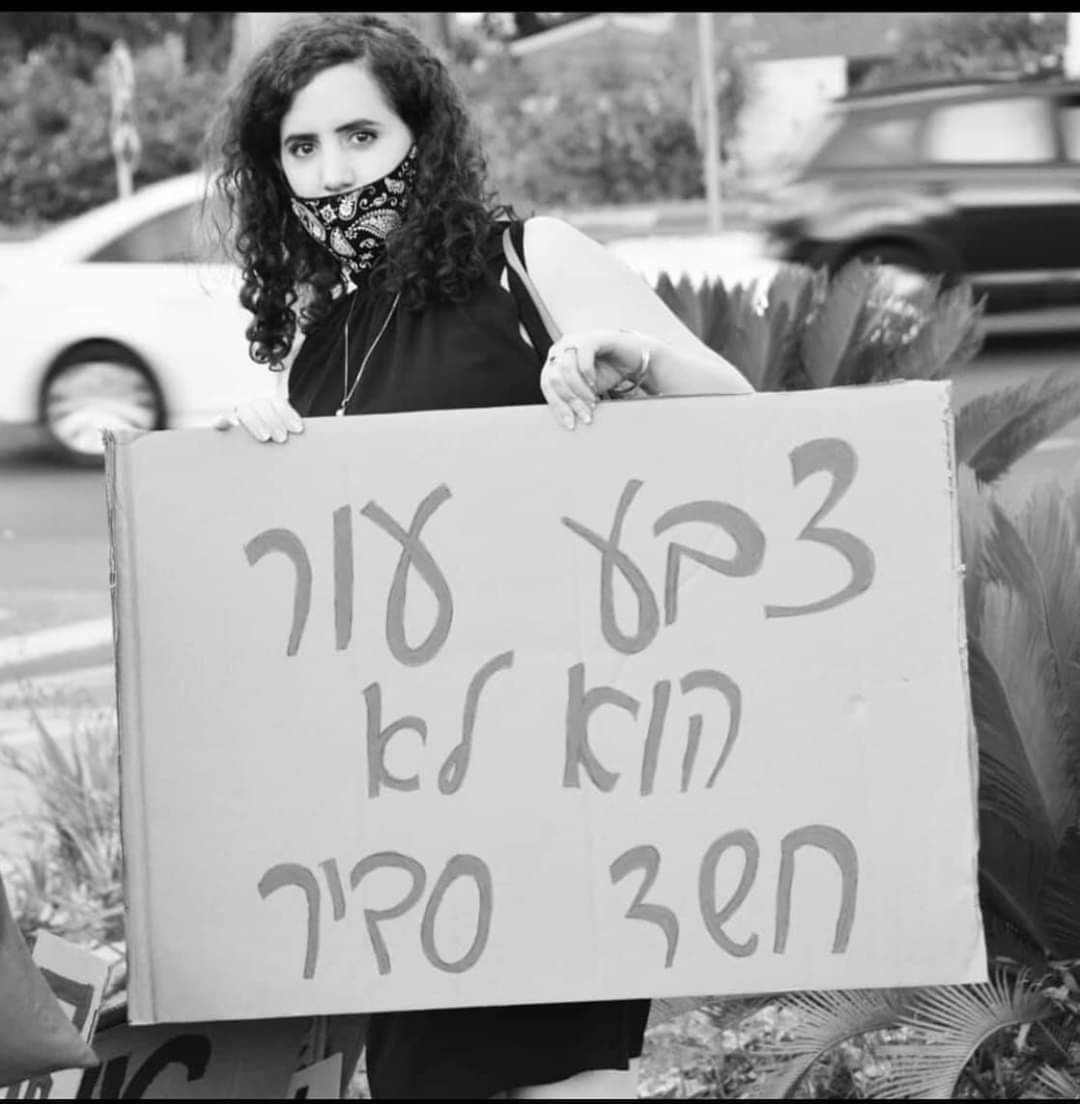 צבע עור
הוא לא
חשד סביר